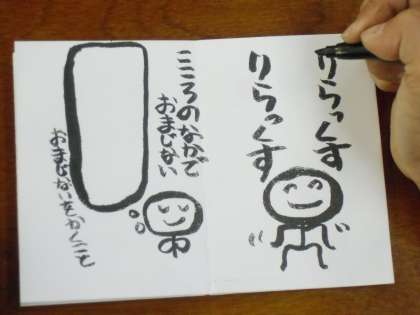 りらっくす
りらっくす
こころのなかで
おまじない
おまじないをかくこと